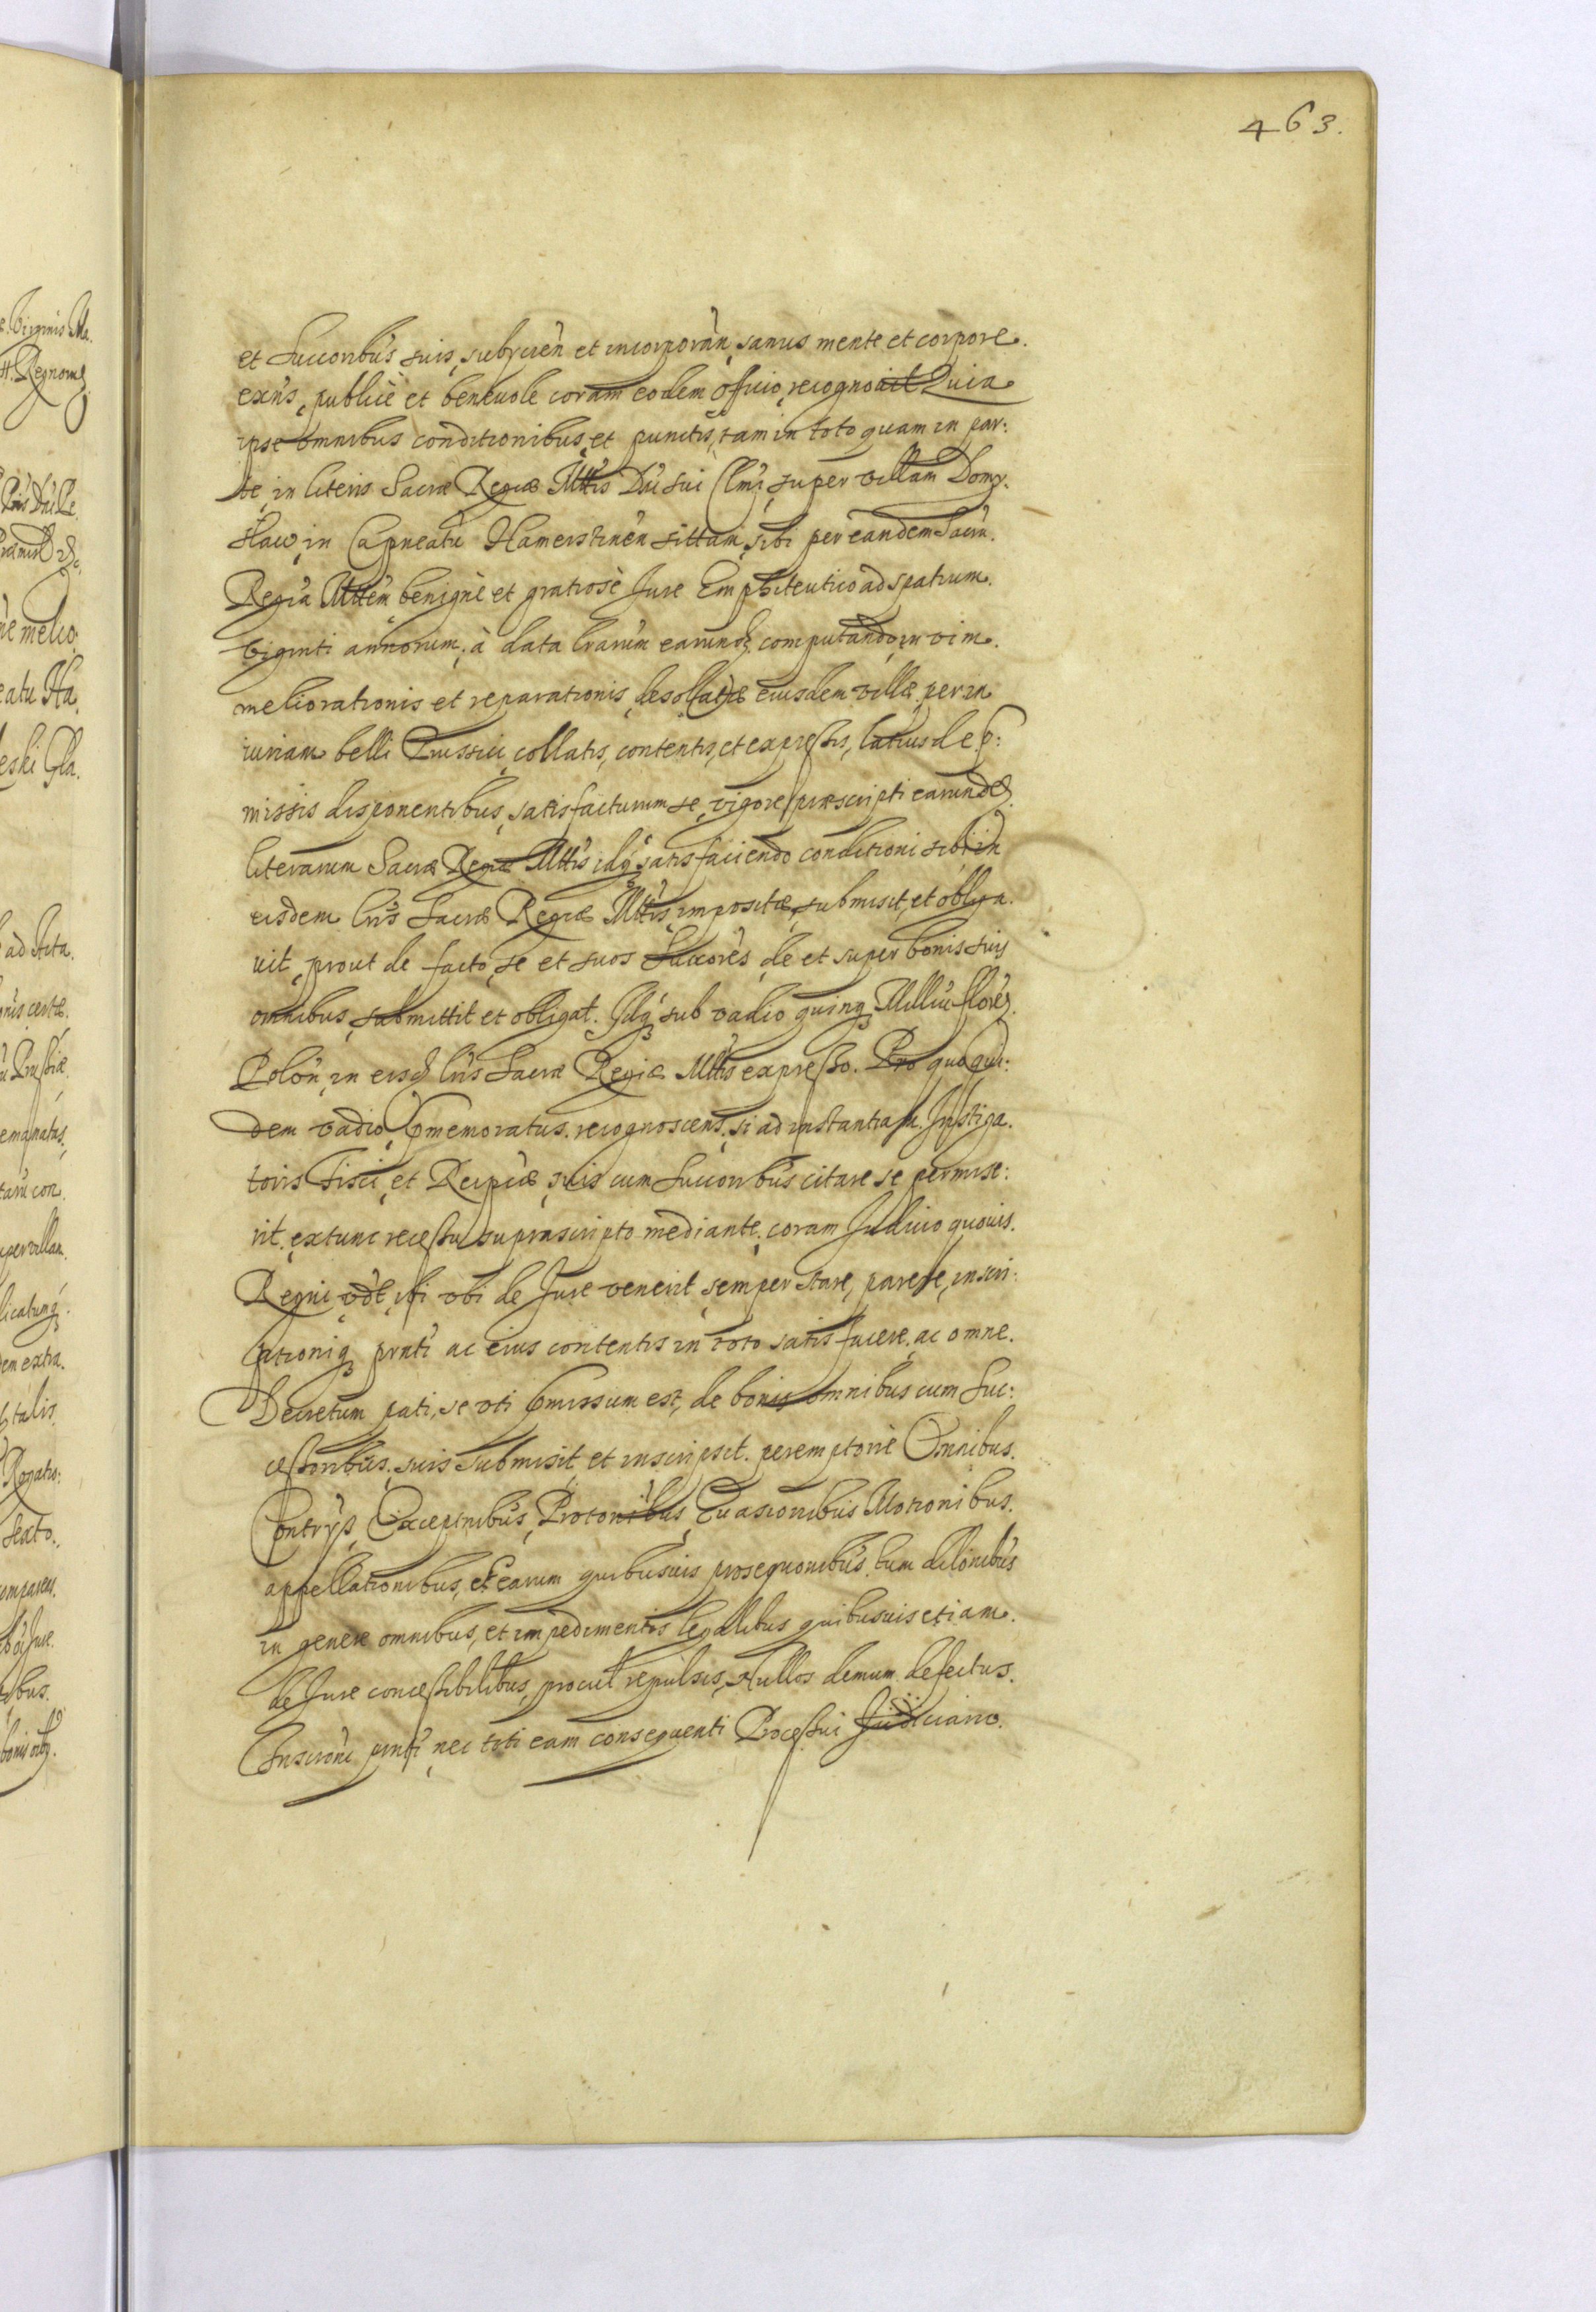 463.
et Succoribús suis, subycień et incorporań, sanus mente et corpore.
exńs, publicè et beneuole coram eodem officio, recognouit Quia
ipse omnibus conditionibus, et punctis, tam in toto quam in par:
te, in literis Sacræ Regiæ Mttis Dńi sui Clmi, super villam Domy.
slaw, in Capneatu Hamerstineń sittam, sibi per eandem Sacrã.
Regiã Mttem benignè et gratiosè Jure Emphiteutico ad spatium.
viginti annorum, à data lrarum earund. computando, in vim.
meliorationis et reparationis, desolatæ eiusdem villæ, per in
iuriam belli Prussici, collatis, contentis, et expressis, latius de p:
missis disponentibus, satisfacturum se, vigore præscripti earunde
literarum Sacræ Regiæ Mttis idq satisfaciendo conditioni sibi in
eisdem lris Sacræ Regiæ Mttis, impositæ, submisit, et obliga.
uit, prout de facto, se et suos Succores, de et super bonis suis
omnibus, submittit et obligat. Idq sub vadio quinq Milliu florez
Polon, in eisd lris Sacræ Regiæ Mttis expresso. Pro quo qui:
dem vadio, pmemoratus recognoscens, si ad instantiam Instiga.
toris Fisci, et Reipcæ, suis cum Succoribus citare se permise:
rit, extunc recessu suprascripto mediante, coram Judicio quouis.
Regni, vdt, ibi vbi de Jure venerit, semper stare, parere, inscri:
ptioniq pnti ac eius contentis in toto satisfacere, ac omne.
Decretum pati, se vti pmissum est, de bonis omnibus cum Suc:
cessoribus, suis submisit et inscripsit. peremptoriè Omnibus.
Contryis, Exceptnibus, Protonibus, Euasionibus Motionibus.
appellationibus, et earum quibusuis prosequonibus, tum dilonibus
in genere omnibus, et impedimentis legalibus quibusuis etiam.
de Jure concessibilibus, procul repulsis, Nullos demum defectus.
Inscrioni pnti, nec toti eam consequenti Processui Judiciario.